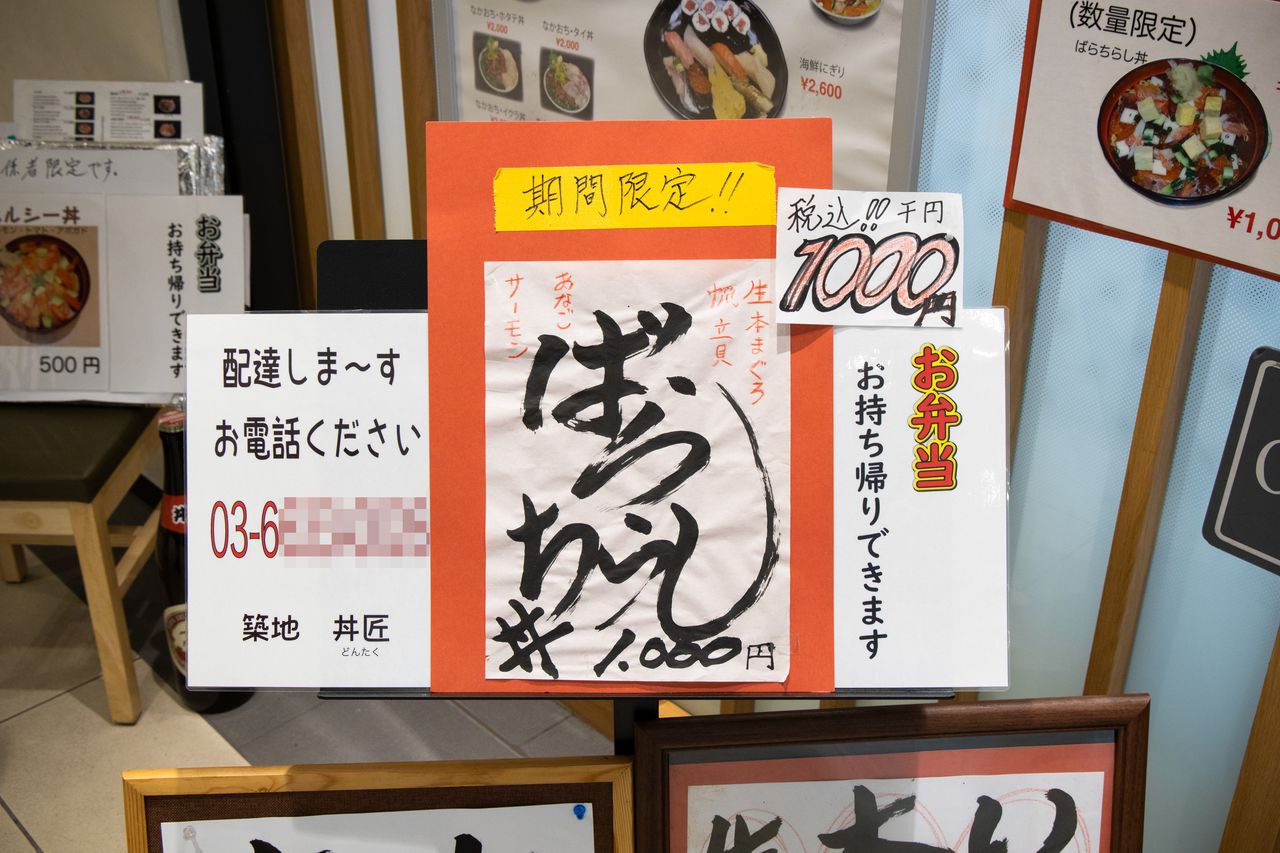 なかおち・ホタテ丼
¥2,000
なかおち・タイ丼
¥2,000
なかおち・イクラ丼
海鮮にぎり
¥2,600
(数量限定)
ばらちらし丼
係者限定です。
ルシー丼
500円
お弁当
お持ち帰りできます
期間限定!!
税込!! 千円
1000円
生本まぐろ
帆立貝
あなご
サーモン
ばら
ちらし
丼 1.000円
配達しま〜す
お電話ください
03-6
築地 丼匠
どんたく
お弁当
お持ち帰りできます